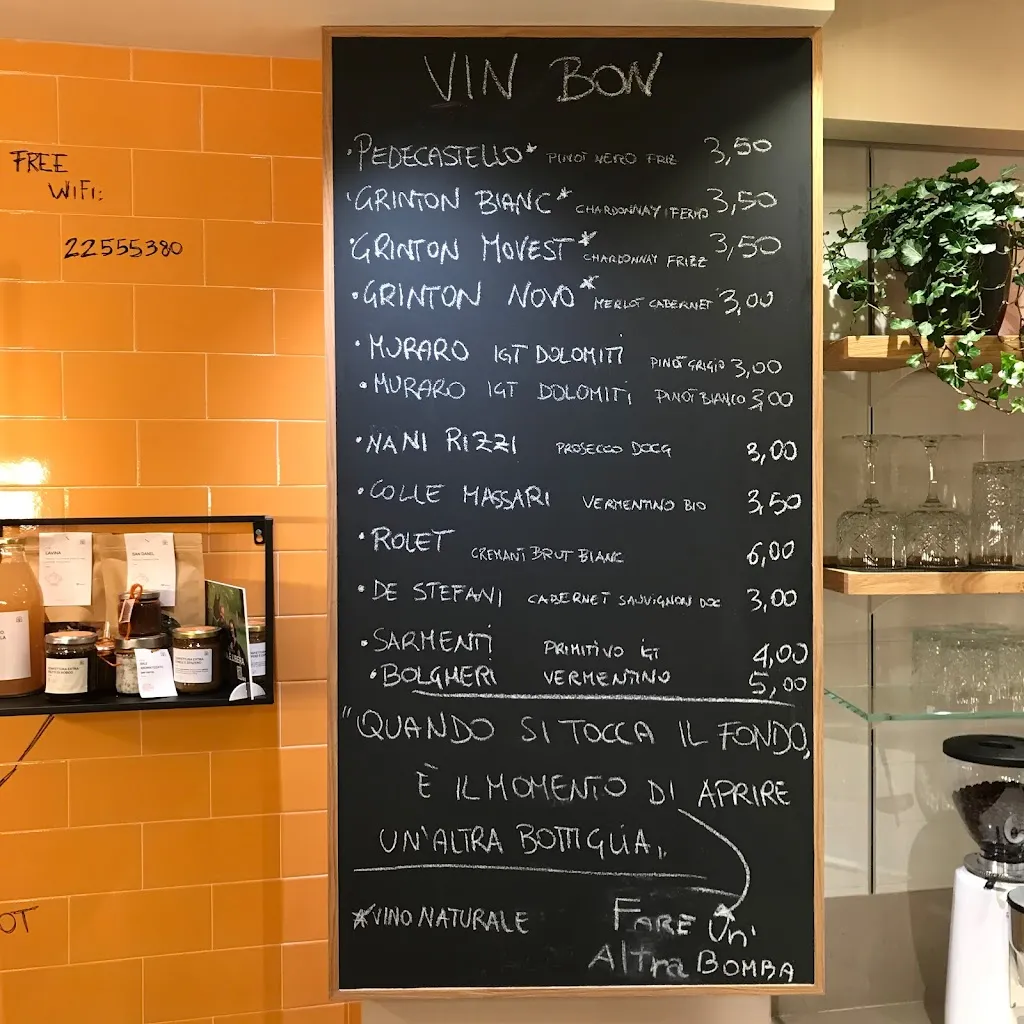 VIN BON
FREE
WIFI:
22555380
•PEDECASTELLO* PINOT NERO FRIZ 3,50
•GRINTON BIANC* CHARDONNAY FERMO 3,50
•GRINTON MOVEST* CHARDONNAY FRIZZ 3,50
•GRINTON NOVO* MERLOT CABERNET 3,00
•MURARO IGT DOLOMITI PINOT GRIGIO 3,00
•MURARO IGT DOLOMITI PINOT BIANCO 3,00
•NANI RIZZI PROSECCO DOCG 3,00
•COLLE MASSARI VERMENTINO BIO 3,50
•ROLET CREMANT BRUT BIANC 6,00
•DE STEFANI CABERNET SAUVIGNON DOC 3,00
•SARMENTI PRIMITIVO IGT 4,00
•BOLGHERI VERMENTINO 5,00
"QUANDO SI TOCCA IL FONDO,
È IL MOMENTO DI APRIRE
UN'ALTRA BOTTIGLIA,
*VINO NATURALE
FARE UN'
ALTRA BOMBA
LAVINA
SAN DANIEL
OT